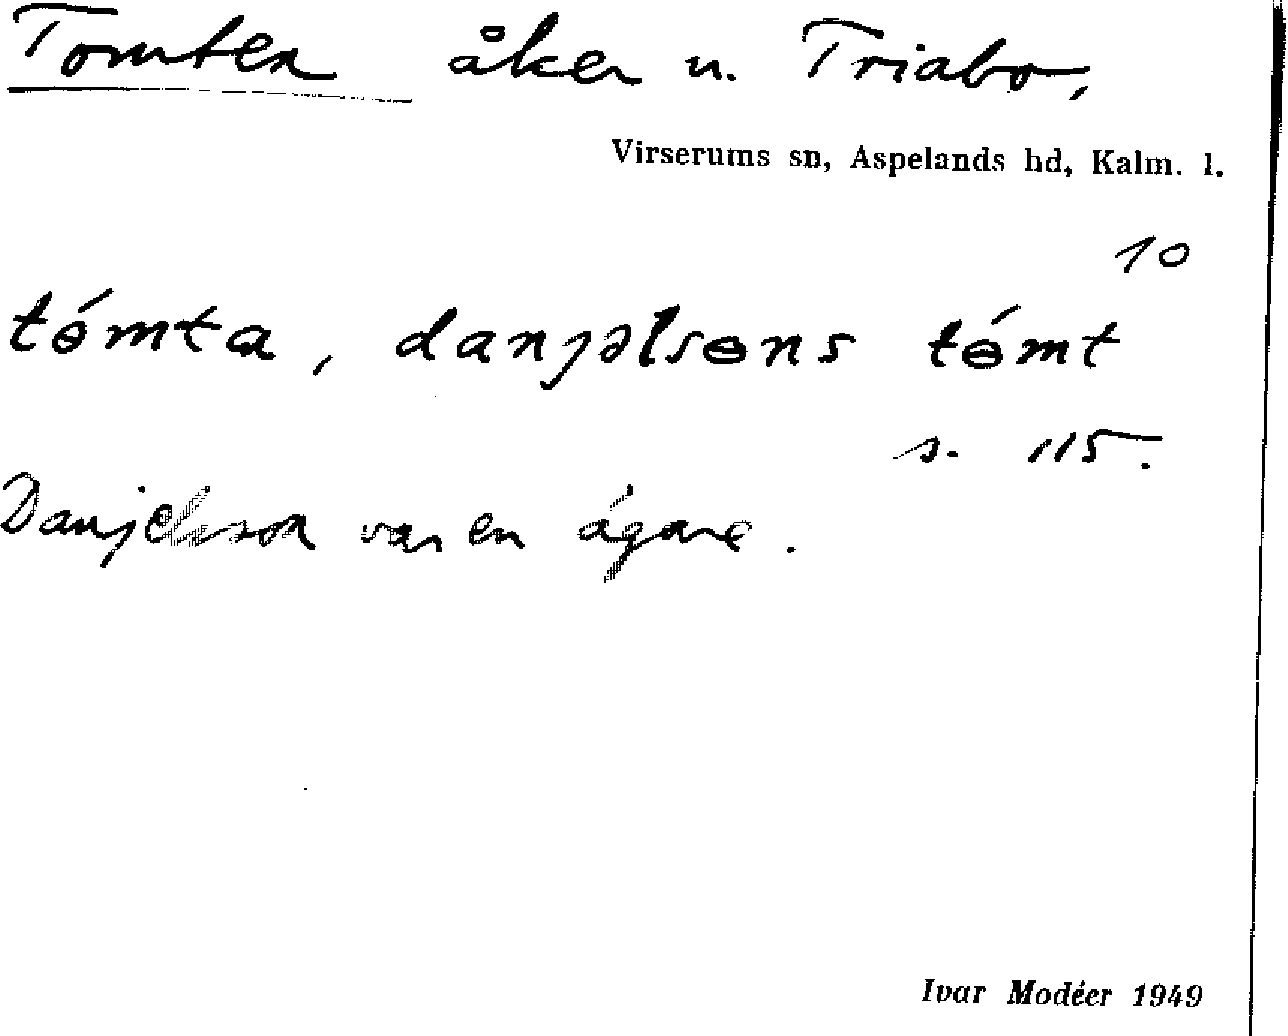 Tomten åker n. Triabo,
Virserums sn, Aspelands hd, Kalm. l.
10
tɵ́mta, danjəlsɵns tɵ́mt
s. 115.
Danjelsson var en ägare.
Ivar Modéer 1949